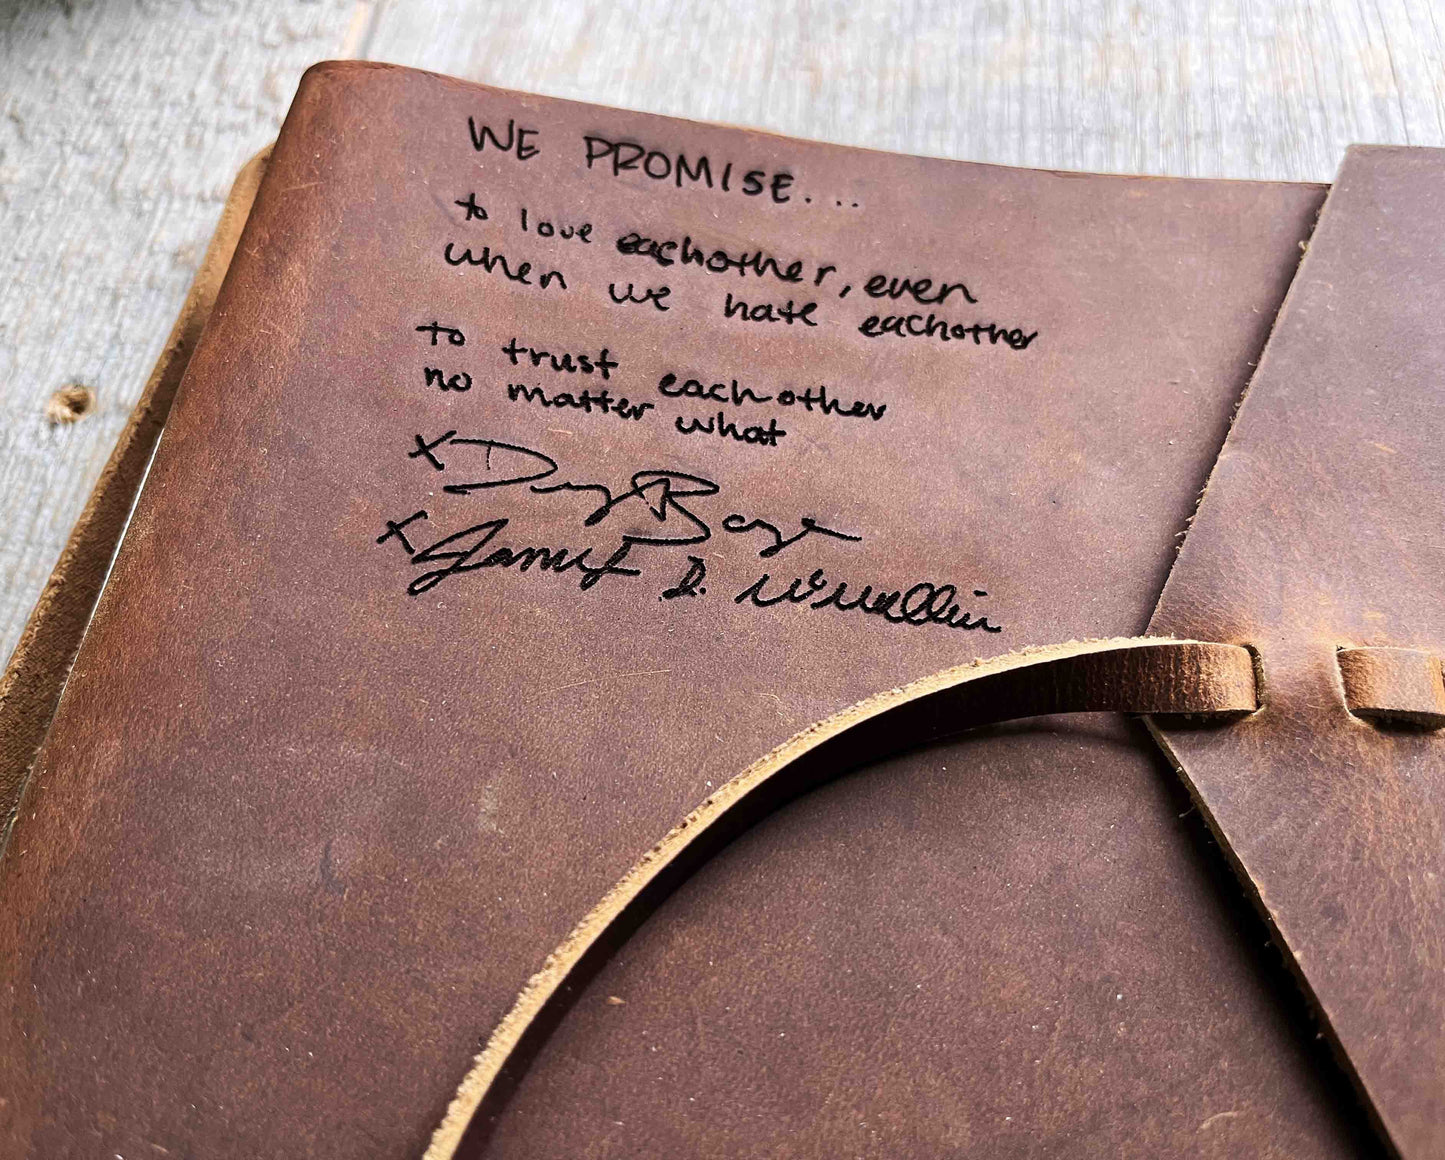 WE PROMISE....
to love eachother, even
when we hate eachother
to trust eachother
no matter what
X
X D. McMullin